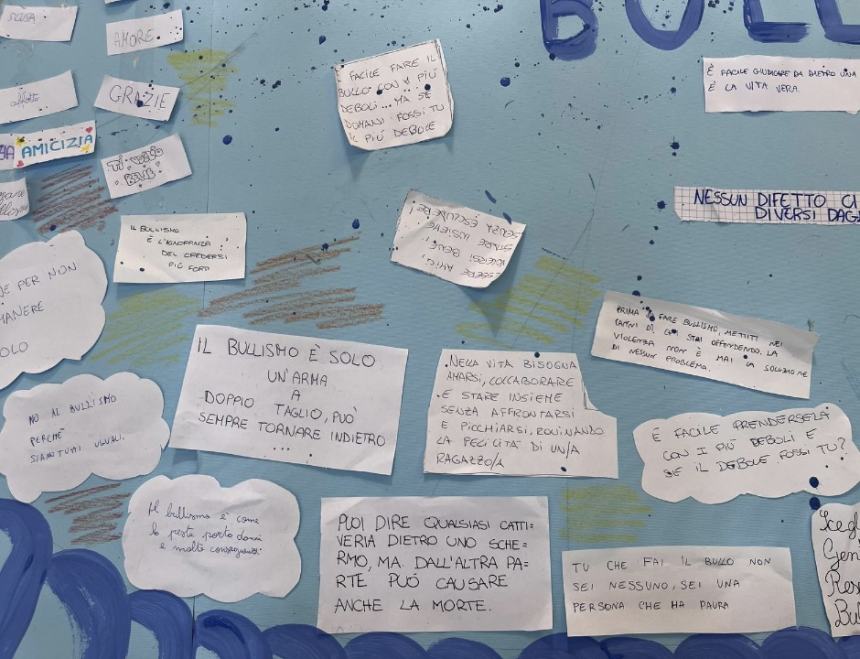 BULL
SCUSA
AMORE
GRAZIE
AMICIZIA
TI VOGLIO
BENE
È FACILE FARE IL
BULLO CON I PIÙ
DEBOLI... MA SE
DOMANI FOSSI TU
IL PIÙ DEBOLE
È FACILE GIUDICARE DA DIETRO UNA
È LA VITA VERA.
NESSUN DIFETTO CI
DIVERSI DAG
IL BULLISMO
È L'IGNORANZA
DEL CREDERSI
PIÙ FORD
ESSERE AMICI,
VOLERSI BENE,
STARE INSIEME
SENZA ESCLUDERE!
E PER NON
MANERE
OLO
PRIMA DI FARE BULLISMO, METTITI NEI
PANNI DI CHI STAI OFFENDENDO. LA
VIOLENZA NON È MAI LA SOLUZIONE
DI NESSUN PROBLEMA.
IL BULLISMO È SOLO
UN'ARMA
A
DOPPIO TAGLIO, PUÒ
SEMPRE TORNARE INDIETRO
...
NELLA VITA BISOGNA
AMARSI, COLLABORARE
E STARE INSIEME
SENZA AFFRONTARSI
E PICCHIARSI, ROVINANDO
LA FELICITÀ DI UN/A
RAGAZZO/A
NO AL BULLISMO
PERCHÉ
SIAMO TUTTI UGUALI.
È FACILE PRENDERSELA
CON I PIÙ DEBOLI E
SE IL DEBOLE FOSSI TU?
Il bullismo è come
la peste porta danni
e molte conseguenze
PUOI DIRE QUALSIASI CATTI=
VERIA DIETRO UNO SCHE=
RMO, MA DALL'ALTRA PA=
RTE PUÒ CAUSARE
ANCHE LA MORTE.
TU CHE FAI IL BULLO NON
SEI NESSUNO, SEI UNA
PERSONA CHE HA PAURA
Scegl
Gen
Res
Bul